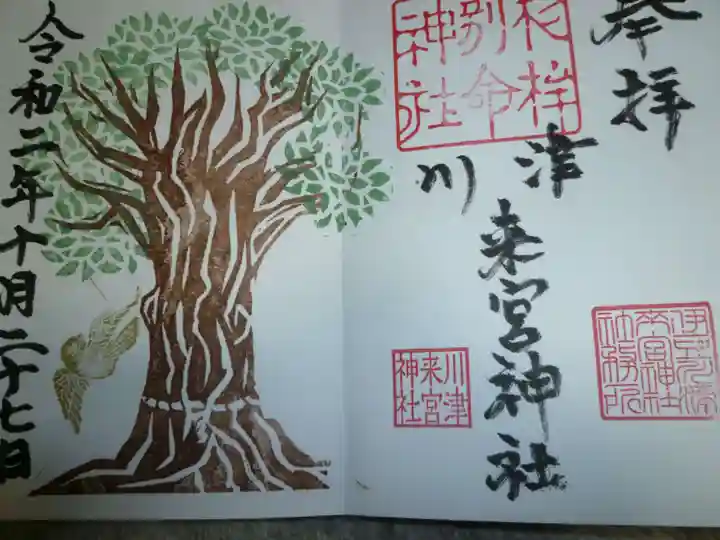 奉拝
杉桙
別命
神社
川津
来宮神社
来宮神社
社務所
川津
来宮
神社
令和二年十月二十七日